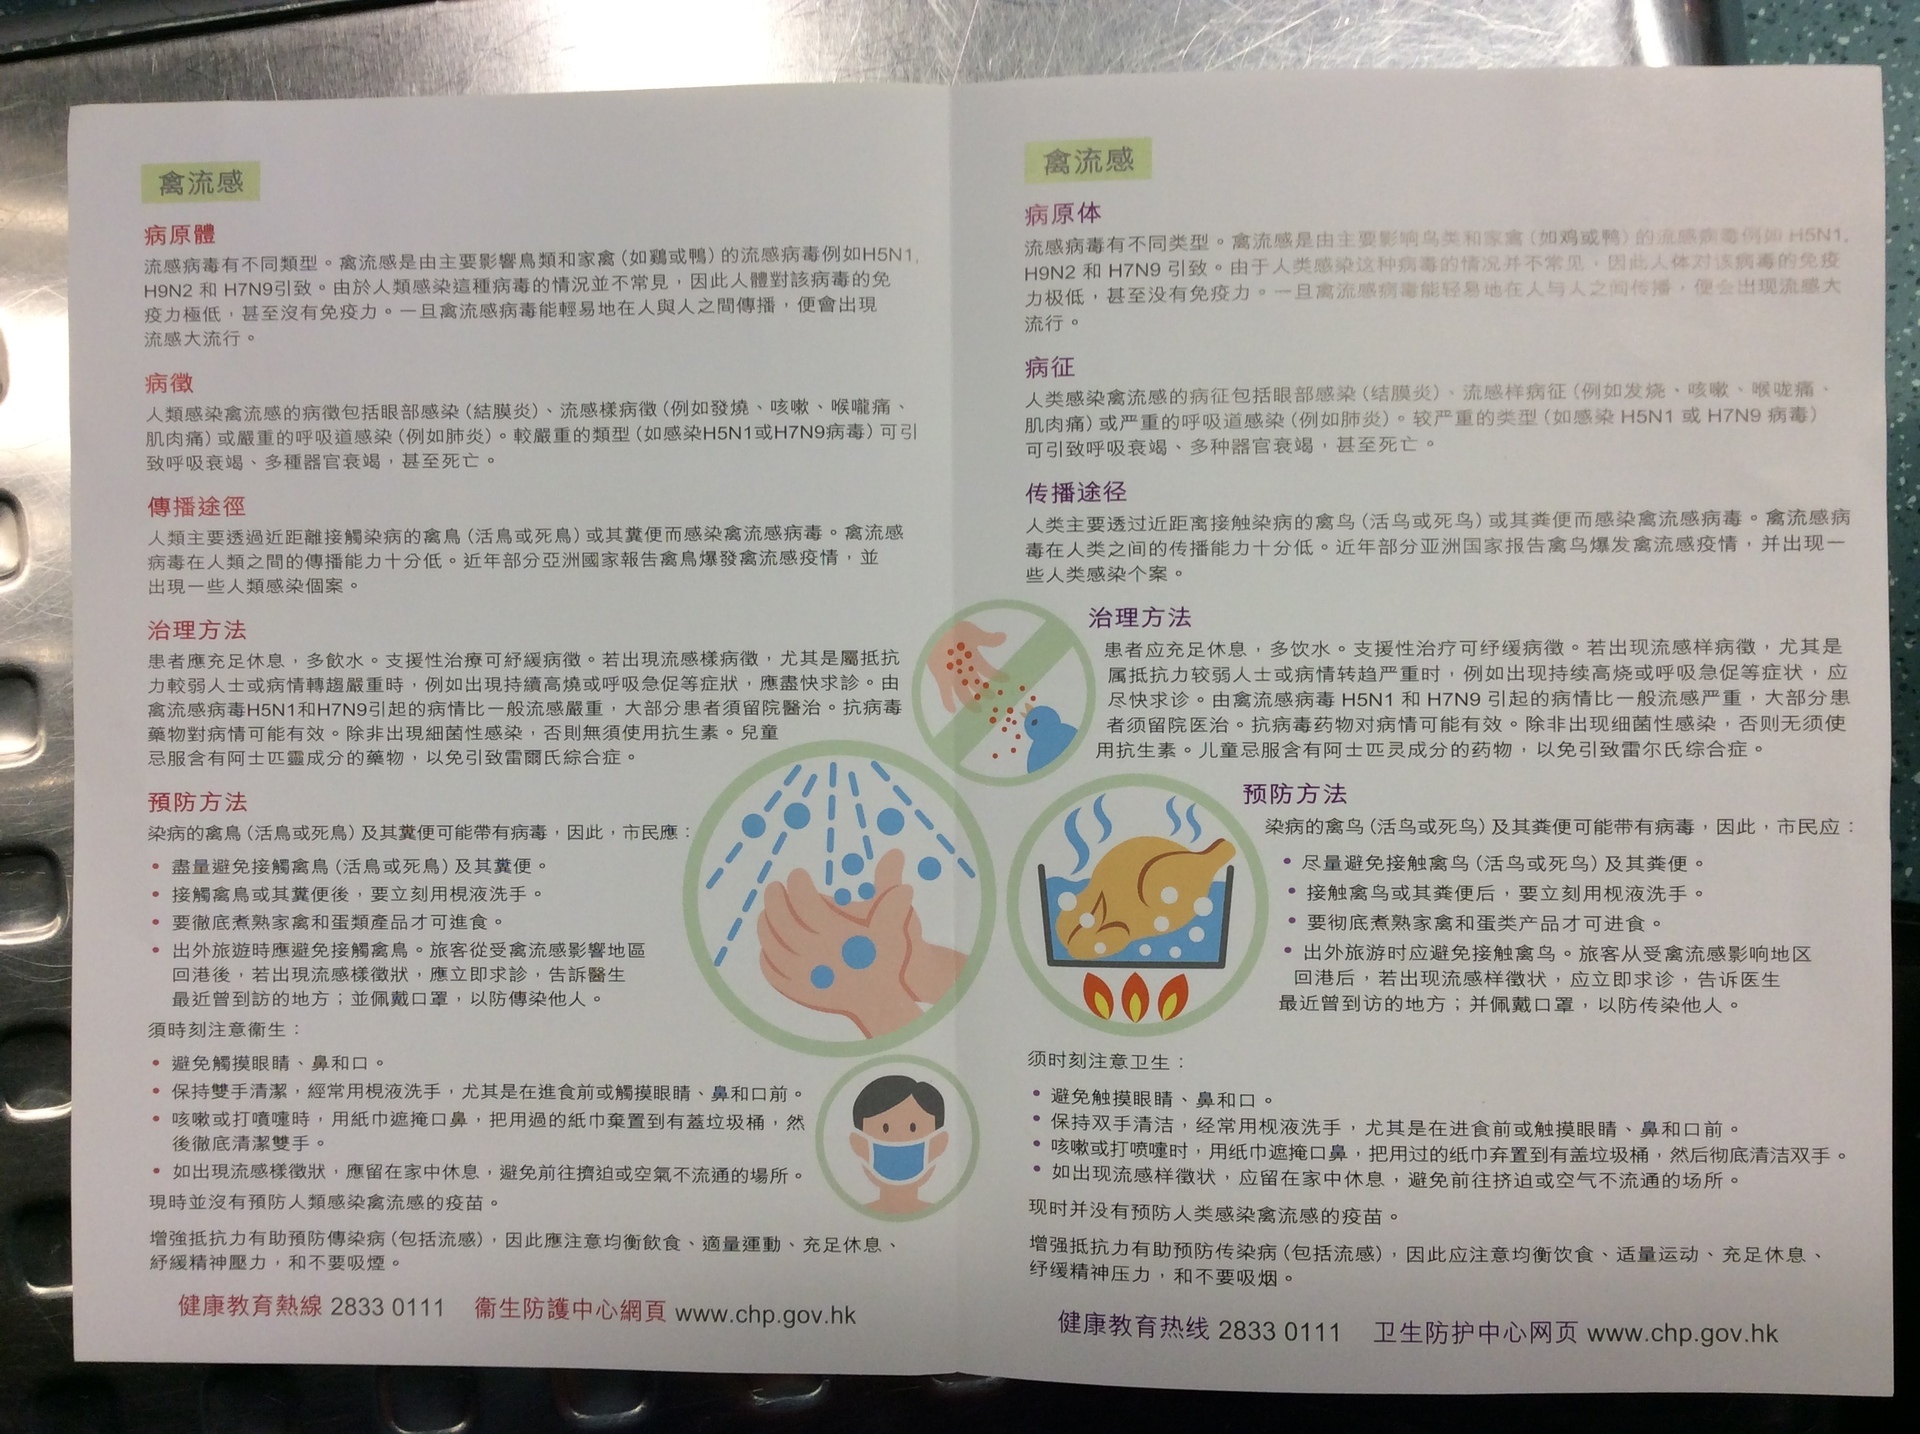 禽流感
病原體
流感病毒有不同類型。禽流感是由主要影響鳥類和家禽（如鷄或鴨）的流感病毒例如H5N1,
H9N2 和 H7N9引致。由於人類感染這種病毒的情況並不常見，因此人體對該病毒的免
疫力極低，甚至沒有免疫力。一旦禽流感病毒能輕易地在人與人之間傳播，便會出現
流感大流行。
病徵
人類感染禽流感的病徵包括眼部感染（結膜炎）、流感樣病徵（例如發燒、咳嗽、喉嚨痛、
肌肉痛）或嚴重的呼吸道感染（例如肺炎）。較嚴重的類型（如感染H5N1或H7N9病毒）可引
致呼吸衰竭、多種器官衰竭，甚至死亡。
傳播途徑
人類主要透過近距離接觸染病的禽鳥（活鳥或死鳥）或其糞便而感染禽流感病毒。禽流感
病毒在人類之間的傳播能力十分低。近年部分亞洲國家報告禽鳥爆發禽流感疫情，並
出現一些人類感染個案。
治理方法
患者應充足休息，多飲水。支援性治療可紓緩病徵。若出現流感樣病徵，尤其是屬抵抗
力較弱人士或病情轉趨嚴重時，例如出現持續高燒或呼吸急促等症狀，應盡快求診。由
禽流感病毒H5N1和H7N9引起的病情比一般流感嚴重，大部分患者須留院醫治。抗病毒
藥物對病情可能有效。除非出現細菌性感染，否則無須使用抗生素。兒童
忌服含有阿士匹靈成分的藥物，以免引致雷爾氏綜合症。
預防方法
染病的禽鳥（活鳥或死鳥）及其糞便可能帶有病毒，因此，市民應：
• 盡量避免接觸禽鳥（活鳥或死鳥）及其糞便。
• 接觸禽鳥或其糞便後，要立刻用梘液洗手。
• 要徹底煮熟家禽和蛋類產品才可進食。
• 出外旅遊時應避免接觸禽鳥。旅客從受禽流感影響地區
回港後，若出現流感樣徵狀，應立即求診，告訴醫生
最近曾到訪的地方；並佩戴口罩，以防傳染他人。
須時刻注意衞生：
• 避免觸摸眼睛、鼻和口。
• 保持雙手清潔，經常用梘液洗手，尤其是在進食前或觸摸眼睛、鼻和口前。
• 咳嗽或打噴嚏時，用紙巾遮掩口鼻，把用過的紙巾棄置到有蓋垃圾桶，然
後徹底清潔雙手。
• 如出現流感樣徵狀，應留在家中休息，避免前往擠迫或空氣不流通的場所。
現時並沒有預防人類感染禽流感的疫苗。
增強抵抗力有助預防傳染病（包括流感），因此應注意均衡飲食、適量運動、充足休息、
紓緩精神壓力，和不要吸煙。
健康教育熱線 2833 0111 衞生防護中心網頁 www.chp.gov.hk
禽流感
病原体
流感病毒有不同类型。禽流感是由主要影响鸟类和家禽（如鸡或鸭）的流感病毒例如 H5N1,
H9N2 和 H7N9 引致。由于人类感染这种病毒的情况并不常见，因此人体对该病毒的免疫
力极低，甚至没有免疫力。一旦禽流感病毒能轻易地在人与人之间传播，便会出现流感大
流行。
病征
人类感染禽流感的病征包括眼部感染（结膜炎）、流感样病征（例如发烧、咳嗽、喉咙痛、
肌肉痛）或严重的呼吸道感染（例如肺炎）。较严重的类型（如感染 H5N1 或 H7N9 病毒）
可引致呼吸衰竭、多种器官衰竭，甚至死亡。
传播途径
人类主要透过近距离接触染病的禽鸟（活鸟或死鸟）或其粪便而感染禽流感病毒。禽流感病
毒在人类之间的传播能力十分低。近年部分亚洲国家报告禽鸟爆发禽流感疫情，并出现一
些人类感染个案。
治理方法
患者应充足休息，多饮水。支援性治疗可纾缓病徵。若出现流感样病徵，尤其是
属抵抗力较弱人士或病情转趋严重时，例如出现持续高烧或呼吸急促等症状，应
尽快求诊。由禽流感病毒 H5N1 和 H7N9 引起的病情比一般流感严重，大部分患
者须留院医治。抗病毒药物对病情可能有效。除非出现细菌性感染，否则无须使
用抗生素。儿童忌服含有阿士匹灵成分的药物，以免引致雷尔氏综合症。
预防方法
染病的禽鸟（活鸟或死鸟）及其粪便可能带有病毒，因此，市民应：
• 尽量避免接触禽鸟（活鸟或死鸟）及其粪便。
• 接触禽鸟或其粪便后，要立刻用枧液洗手。
• 要彻底煮熟家禽和蛋类产品才可进食。
• 出外旅游时应避免接触禽鸟。旅客从受禽流感影响地区
回港后，若出现流感样徵状，应立即求诊，告诉医生
最近曾到访的地方；并佩戴口罩，以防传染他人。
须时刻注意卫生：
• 避免触摸眼睛、鼻和口。
• 保持双手清洁，经常用枧液洗手，尤其是在进食前或触摸眼睛、鼻和口前。
• 咳嗽或打喷嚏时，用纸巾遮掩口鼻，把用过的纸巾弃置到有盖垃圾桶，然后彻底清洁双手。
• 如出现流感样徵状，应留在家中休息，避免前往挤迫或空气不流通的场所。
现时并没有预防人类感染禽流感的疫苗。
增强抵抗力有助预防传染病（包括流感），因此应注意均衡饮食、适量运动、充足休息、
纾缓精神压力，和不要吸烟。
健康教育热线 2833 0111 卫生防护中心网页 www.chp.gov.hk